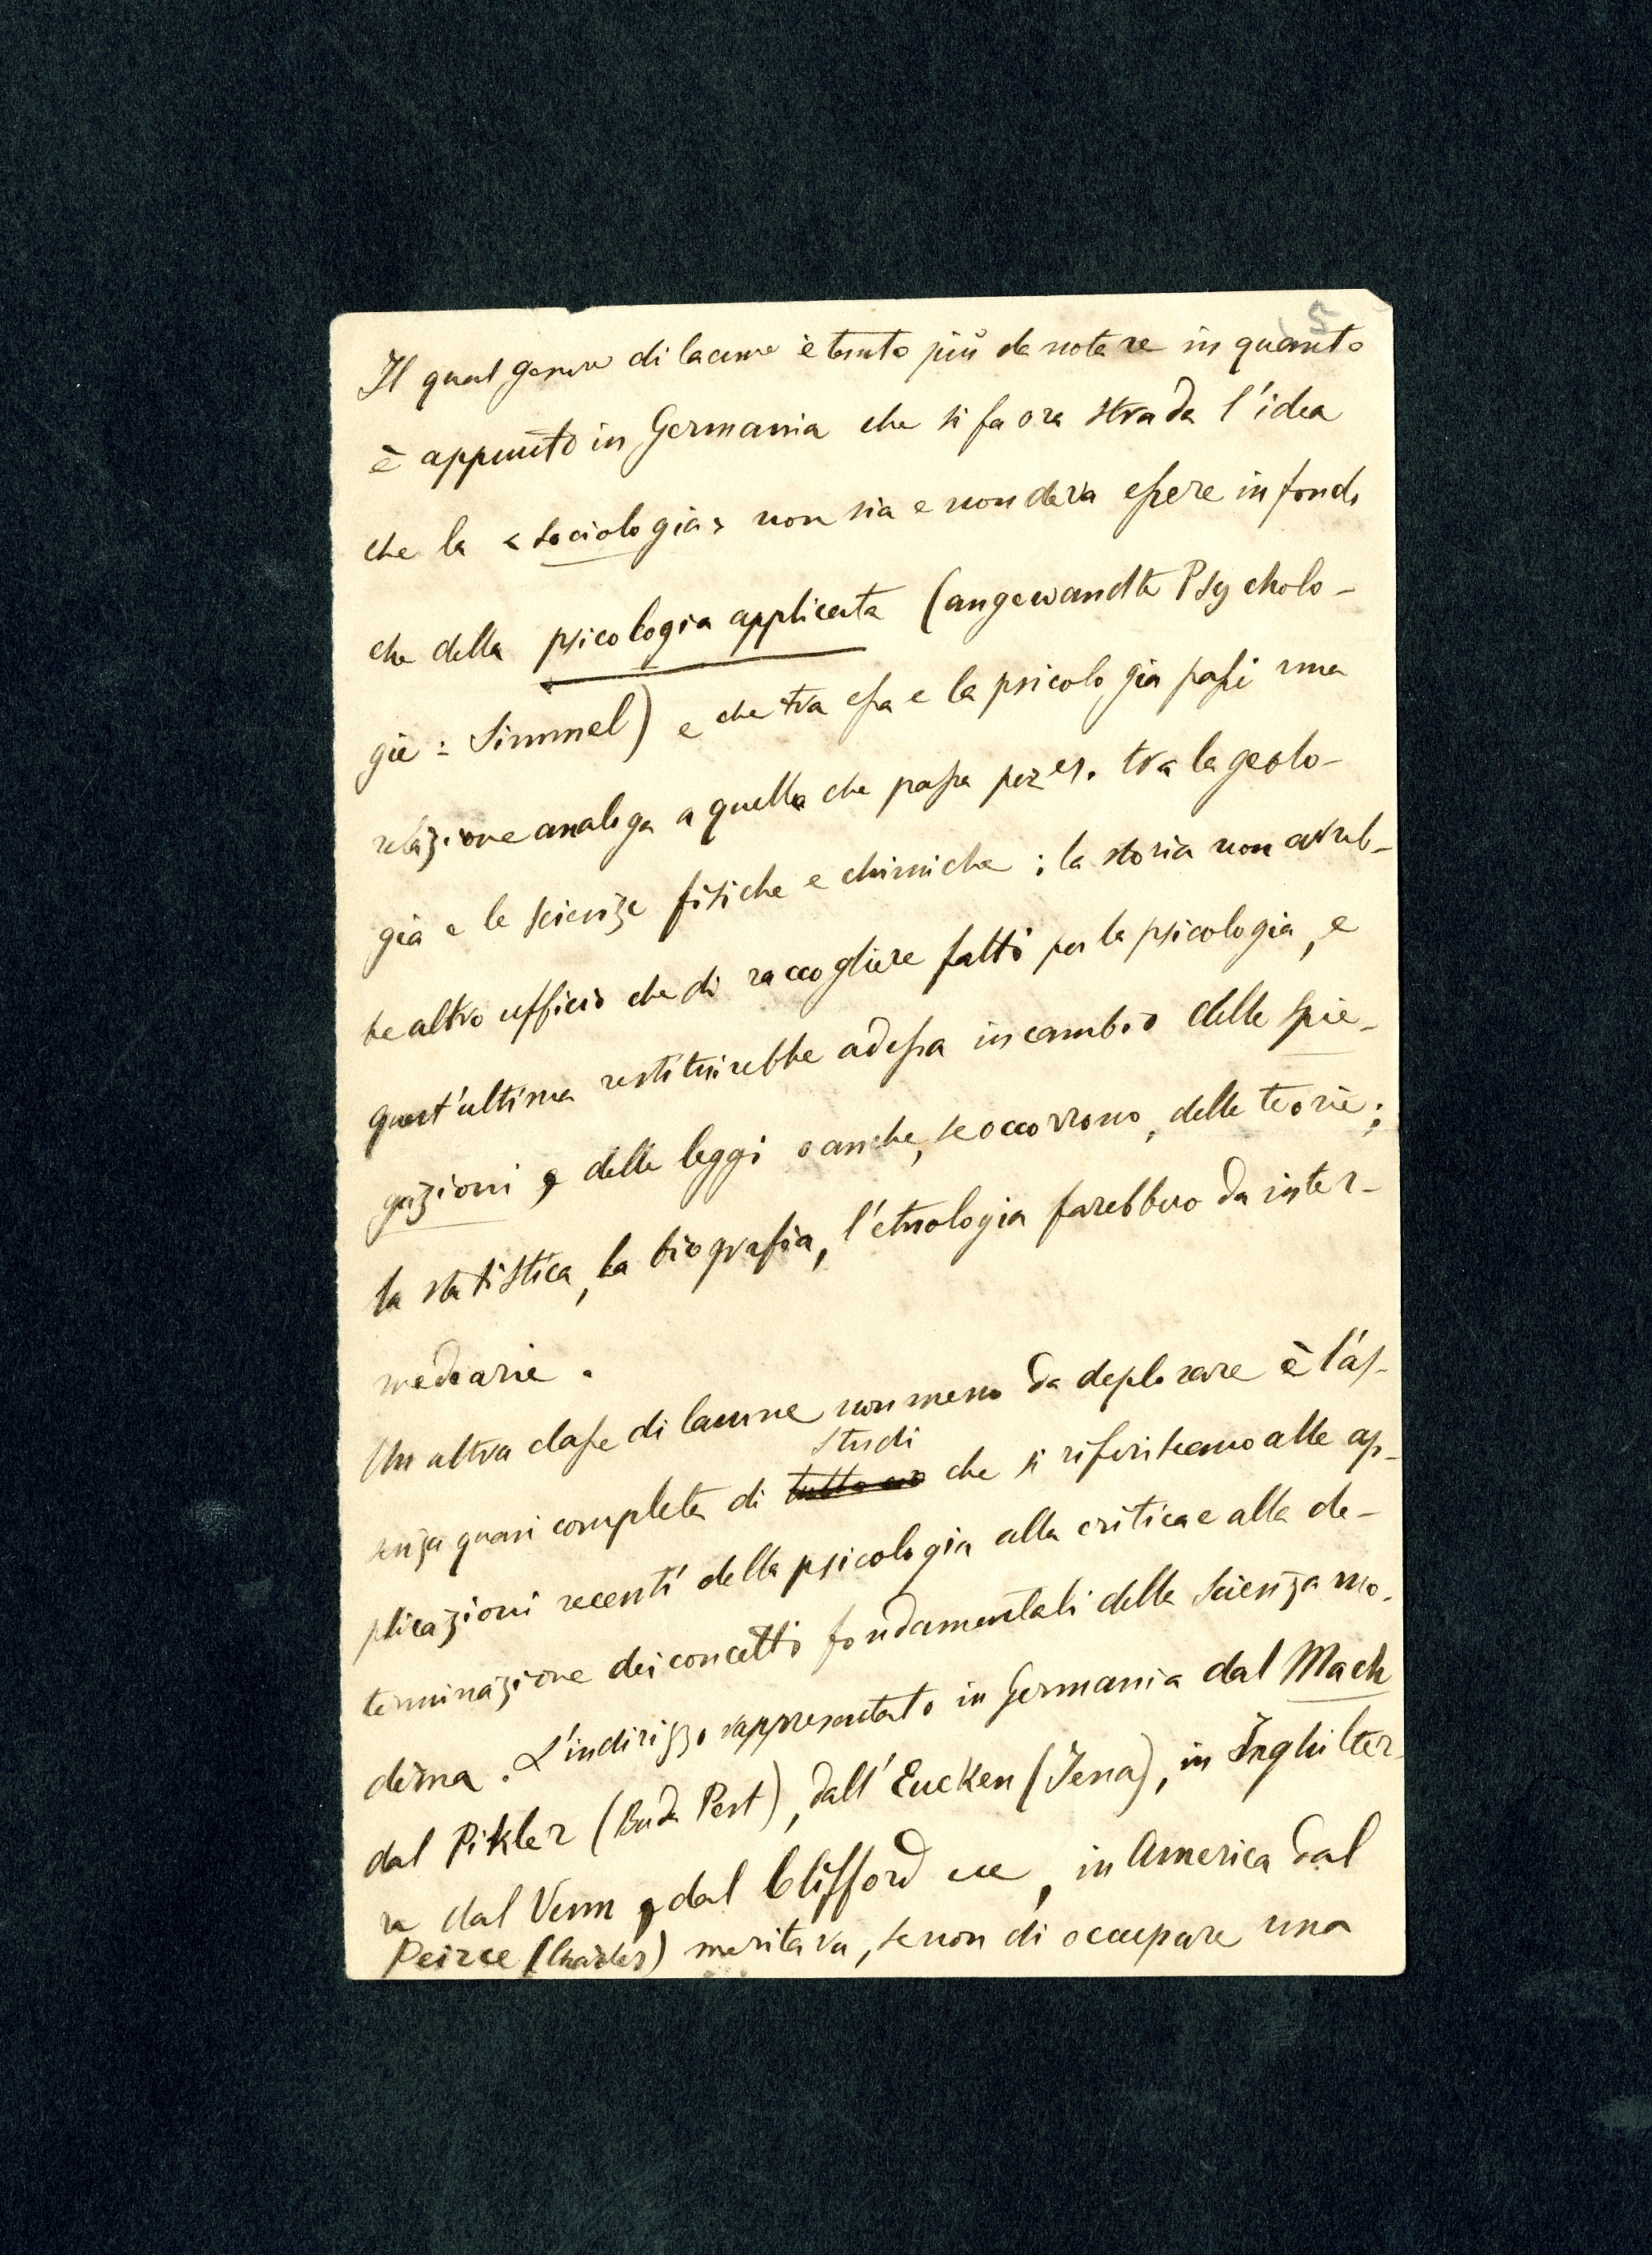 5
Il qual genere di lacune è tanto più da notare in quanto
è appunto in Germania che si fa ora strada l'idea
che la «sociologia» non sia e non deva essere in fondo
che della psicologia applicata (angewandte Psycholo-
gie: Simmel) e che tra essa e la psicologia passi una
relazione analoga a quella che passa per es. tra la geolo-
gia e le scienze fisiche e chimiche; la storia non avreb-
be altro ufficio che di raccogliere fatti per la psicologia, e
quest'ultima restituirebbe ad essa in cambio delle spie-
gazioni, delle leggi o anche, se occorrono, delle teorie;
la statistica, la biografia, l'etnologia farebbero da inter-
mediarie.
Un altra classe di lacune non meno da deplorare è l'as-
studi
senza quasi completa di tutto ciò che si riferiscano alle ap-
plicazioni recenti della psicologia alla critica e alla de-
terminazione dei concetti fondamentali della scienza mo-
derna. L'indirizzo rappresentato in Germania dal Mach
dal Pikler (Buda Pest), dall'Eucken (Jena), in Inghilter-
ra dal Venn, dal Clifford ecc, in America dal
Peirce (Charles) meritava, se non di occupare una